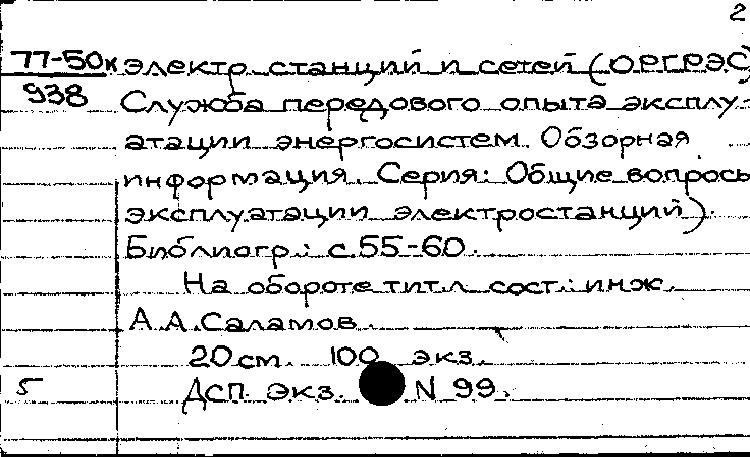 2
77-50к электр. станций и сетей (ОРГРЭС)
938 Служба передового опыта эксплу-
атации энергосистем. Обзорная
информация. Серия: Общие вопросы
эксплуатации электростанций).
Библиогр.: с.55-60.
На обороте тит.л. сост.: инж.
А.А.Саламов.
20см. 100 экз.
5 Дсп. экз. N 99.